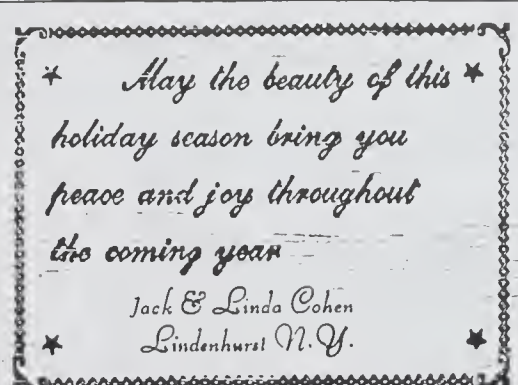 May the beauty of this
holiday season bring you
peace and joy throughout
the coming year
Jack & Linda Cohen
Lindenhurst N.Y.